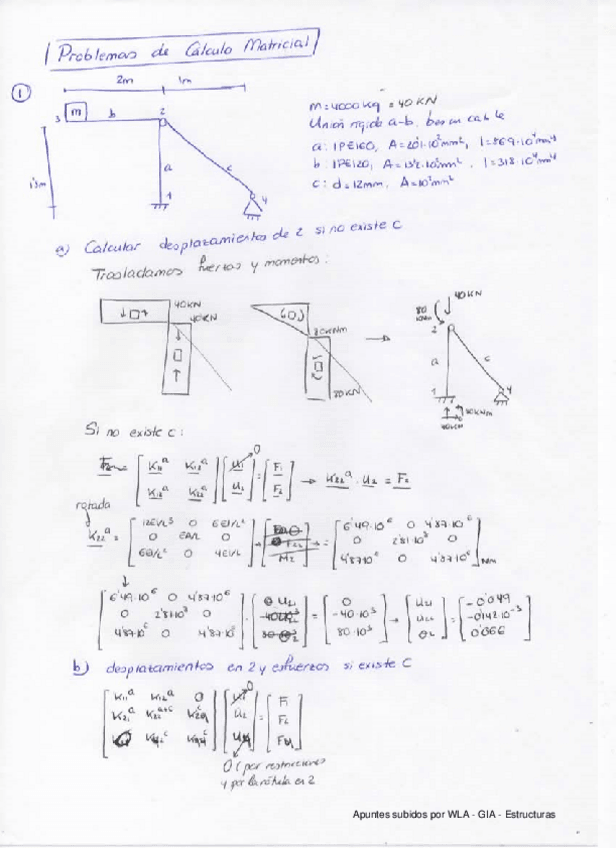 Problemas de Cálculo Matricial
1
2m 1m
3 m b 2
1'5m a c
1 4
m = 4000kg = 40KN
Unión rígida a-b, bas en cable
a: IPE160, A=20'1·10²mm², I=869·10⁴mm⁴
b: IPE120, A=13'2·10²mm², I=318·10⁴mm⁴
c: d=12mm, A=10²mm²
a) Calcular desplazamientos de 2 si no existe c
Trasladamos fuerzas y momentos:
40KN
40KN
80KNm
80KNm
80 KNm 40KN
2
a c
1 4
40KN
Si no existe c:
[K11ᵃ K12ᵃ] [U1] 0 = [F1]
[K12ᵃ K22ᵃ] [U2] [F2] → K22ᵃ · U2 = F2
rotada
K22ᵃ = [12EI/L³ 0 6EI/L²] = [6'49·10⁶ 0 4'87·10⁶]
[0 EA/L 0] [0 2'81·10⁸ 0]
[6EI/L² 0 4EI/L] M2 [4'87·10⁶ 0 4'87·10⁶]
[6'49·10⁶ 0 4'87·10⁶] U2 [0] [-0'049]
[0 2'81·10⁸ 0] = [-40·10³] → = [-0'142·10⁻³]
[4'87·10⁶ 0 4'87·10⁶] [80·10³] θ2 [0'066]
b) desplazamientos en 2 y esfuerzos si existe c
[K11ᵃ K12ᵃ 0] [U1] 0 [F1]
[K21ᵃ K22ᵃ⁺ᶜ K24ᶜ] [U2] = [F2]
[K42ᶜ K44ᶜ] [U4] [F4]
0 (por restricciones
y por la rótula en 2
Apuntes subidos por WLA - GIA - Estructuras